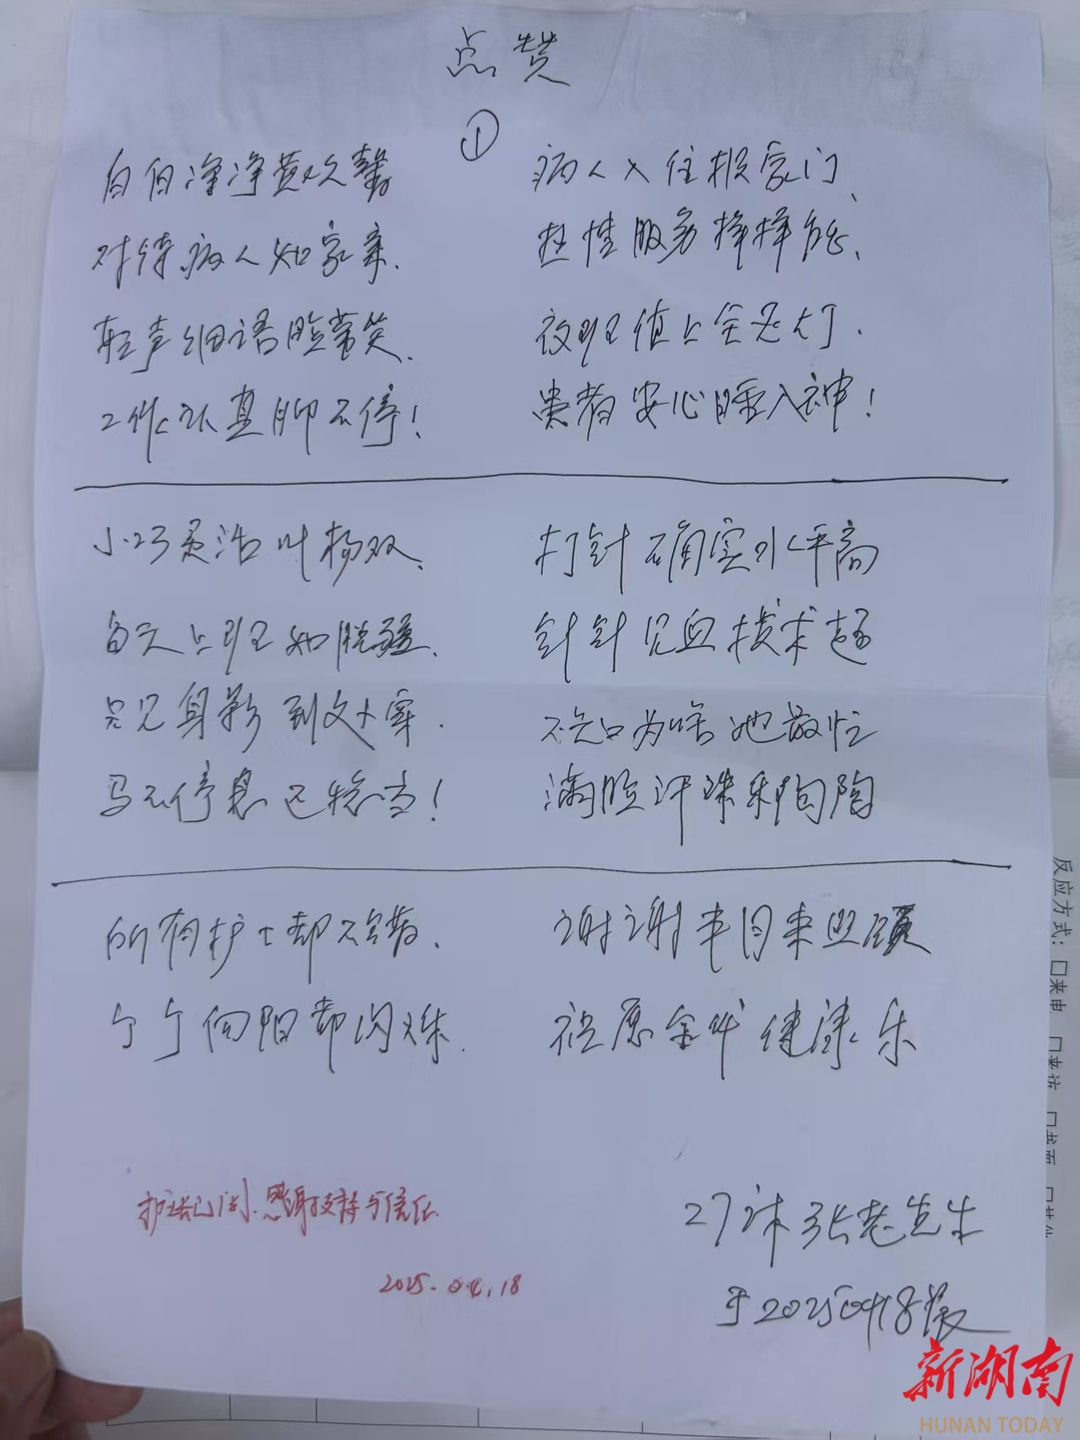 点赞
①
白白净净黄欢馨
对待病人如家亲、
轻声细语脸常笑、
工作认真聊不停!
病人入住报家门、
热性服务择择能、
夜班值上全无灯、
患者安心睡入神!
小巧灵活叶杨双、
每天上班如脱疆、
只见身影到文大
马不停息已
打针确实水平高
针针见血技术超
不知为啥她最忙
满脸汗珠乐陶陶
所有护士都不错、
个个向阳都闪烁、
谢谢半月来照顾
祝愿全体健康乐
护士长已阅、感谢支持与信任
2025.04.18
27床张老先生
于20250418敬
反应方式:□来电 □来访
新湖南
HUNAN TODAY